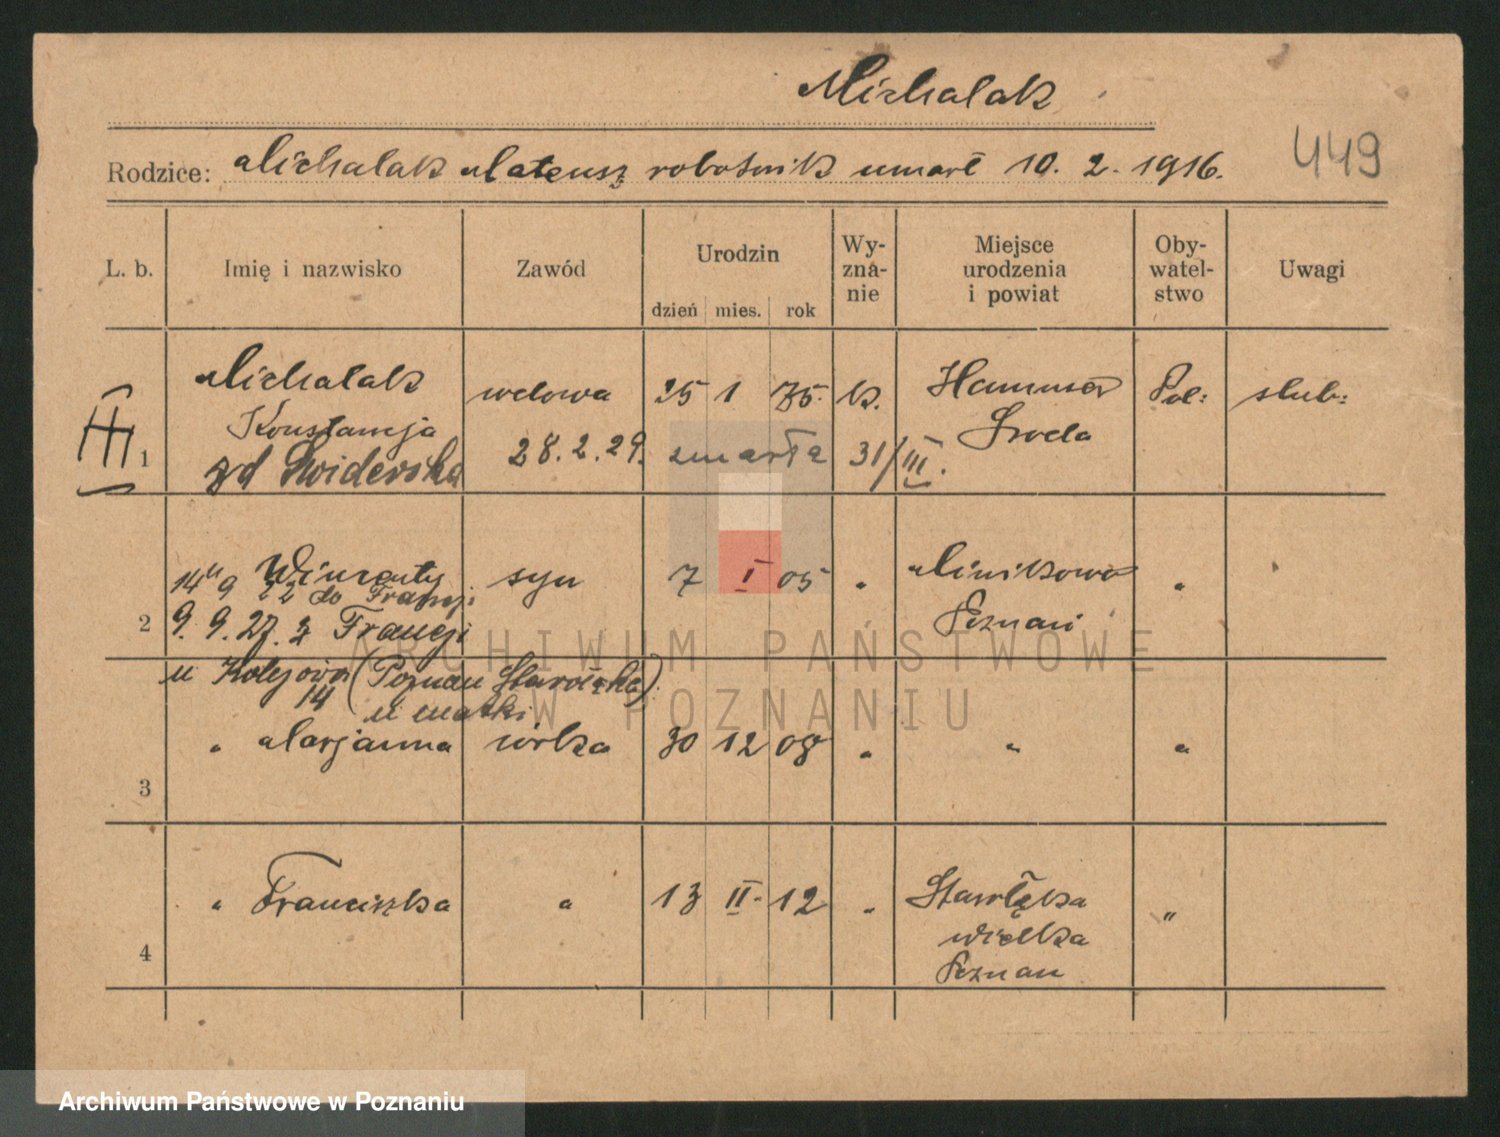 Michalak
449
Rodzice: Michalak Mateusz robotnik umarł 10. 2. 1916.
L. b. Imię i nazwisko Zawód Urodzin Wy- Miejsce Oby- Uwagi
zna- urodzenia watel-
dzień mies. rok nie i powiat stwo
Michalak wdowa 25 1 75. k. Pol: slub:
Konstancja Sroda
1 zd Swiderska 28. 2. 29. zmarła 31/III.
Wincenty syn 7 I 05 " Minikowo "
14 9 22 do Francji
2 9. 9. 27. z Francji Poznań
u Kolejowa (Poznan Starołęka)
14 u matki
" Marjanna córka 30 12 08 " " "
3
" Franciszka " 13 II. 12 " Starołęka "
wielka
4 Poznan
ARCHIWUM PAŃSTWOWE
W POZNANIU
Archiwum Państwowe w Poznaniu